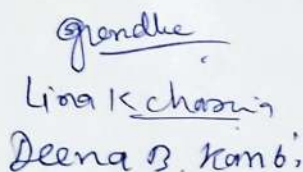 Grendhe
Lina K chasmia
Deena B. Kambi